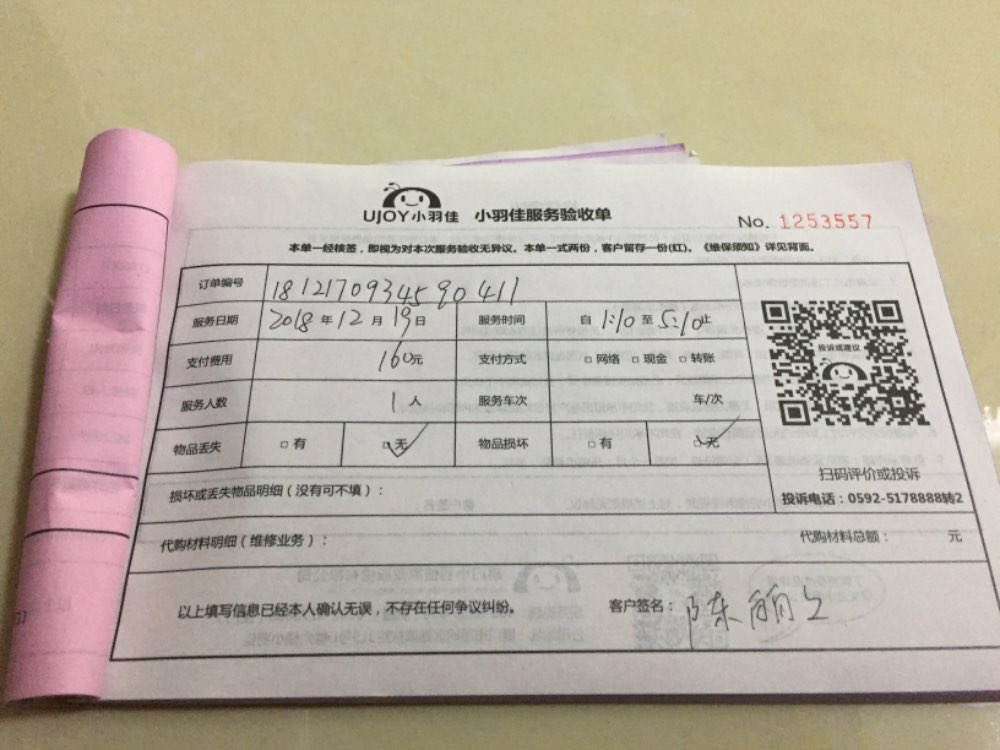 UJOY小羽佳 小羽佳服务验收单
No. 1253557
本单一经核签，即视为对本次服务验收无异议。本单一式两份，客户留存一份(红)。《维保须知》详见背面。
订单编号 1812170934590411
服务日期 2018年12月19日 服务时间 自1:10至5:10止
投诉或建议
支付费用 160元 支付方式 □网络 □现金 □转账
服务人数 1人 服务车次 车/次
物品丢失 □有 □无 物品损坏 □有 □无
扫码评价或投诉
投诉电话：0592-5178888转2
损坏或丢失物品明细（没有可不填）：
代购材料明细（维修业务）： 代购材料总额： 元
以上填写信息已经本人确认无误，不存在任何争议纠纷。 客户签名：陈丽